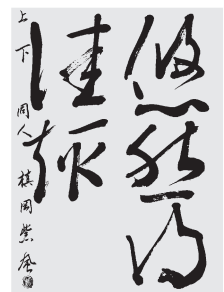 悠然得
佳趣
上下同人 棋岡紫峰